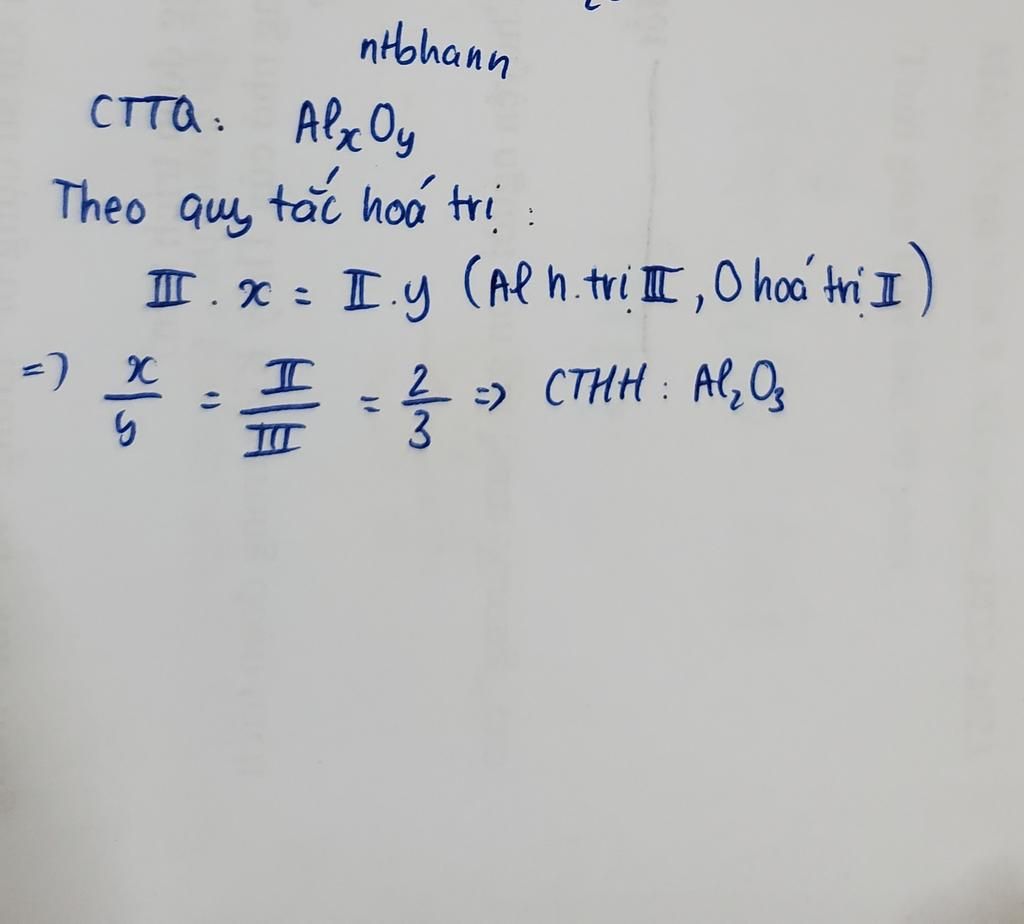 nHbhann
CTTQ: AlₓOᵧ
Theo quy tắc hoá trị :
III . x = II . y (Al h.trị III, O hoá trị II)
=> x/y = II/III = 2/3 => CTHH : Al₂O₃